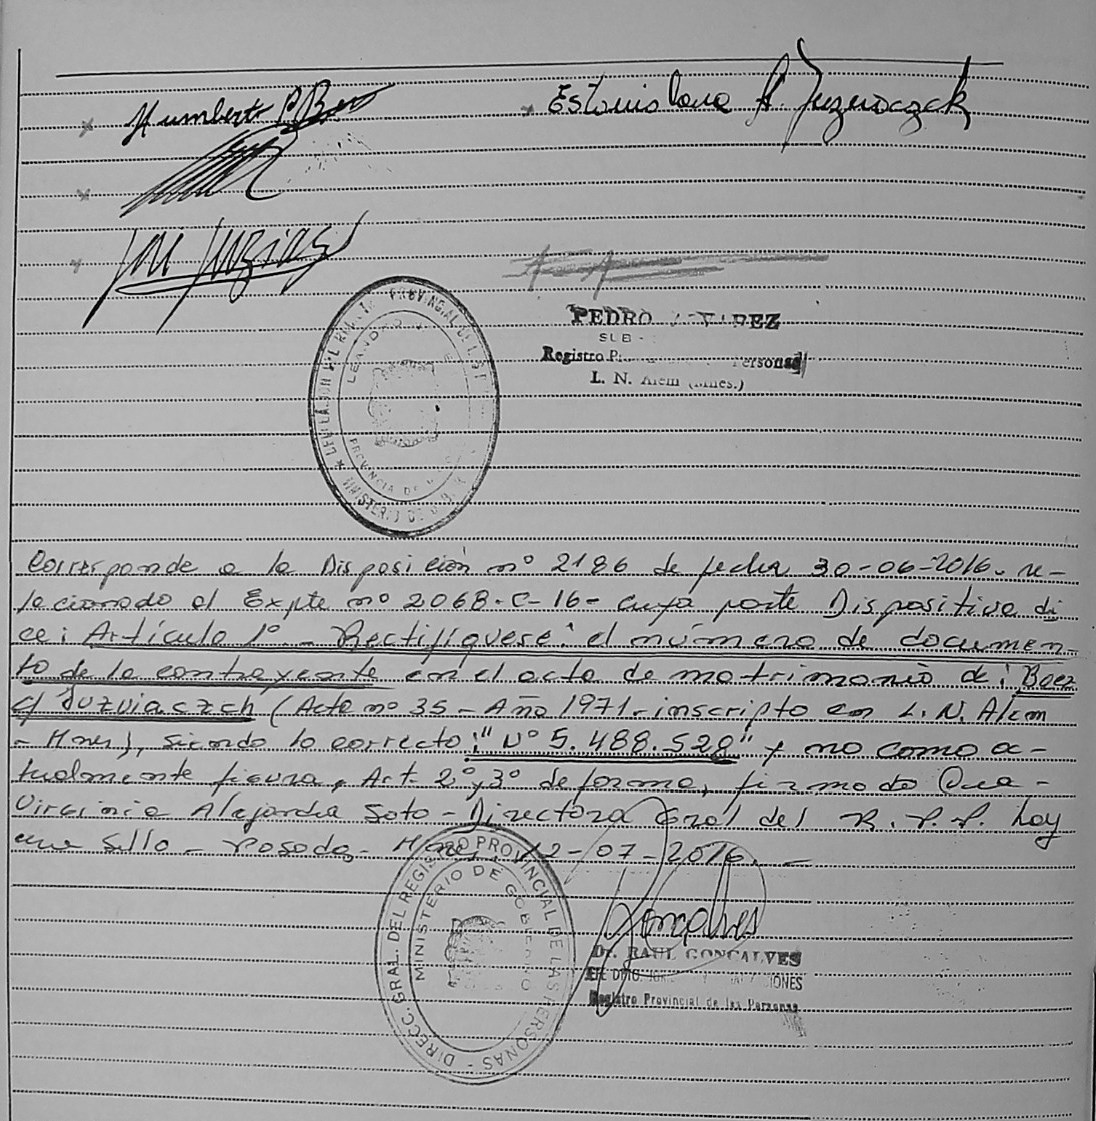 Humberto P. Baez
Estanislava A. Juzwiaczek
PEDRO
SUB -
Registro P. Personas
L. N. Alem (Mnes.)
PROVINCIAL DE
LEANDRO N.
PROVINCIA DE
MINISTERIO DE
Corresponde a la Disposición nº 2186 de fecha 30-06-2016. re-
lacionado al Expte nº 2068-C-16- cuya parte Dispositiva di
ce: Artículo 1º - Rectifíquese: el número de documen-
to de la contrayente en el acta de matrimonio de: Baez
c/ Juzviaczch (Acta nº 35 - Año 1971 - inscripto en L. N. Alem
- Mnes), siendo lo correcto: "Nº 5.488.528" y no como a-
tualmente figura, Art. 2º y 3º de forma, firmado Dra-
Virginia Alejandra Soto - Directora Gral del R. P. P. hay
un sello - Posadas - Mnes, 12-07-2016. -
DIRECC. GRAL. DEL REGISTRO PROVINCIAL DE LAS PERSONAS -
MINISTERIO DE GOBIERNO
Goncalves
Dr. RAUL GONCALVES
Registro Provincial de las Personas